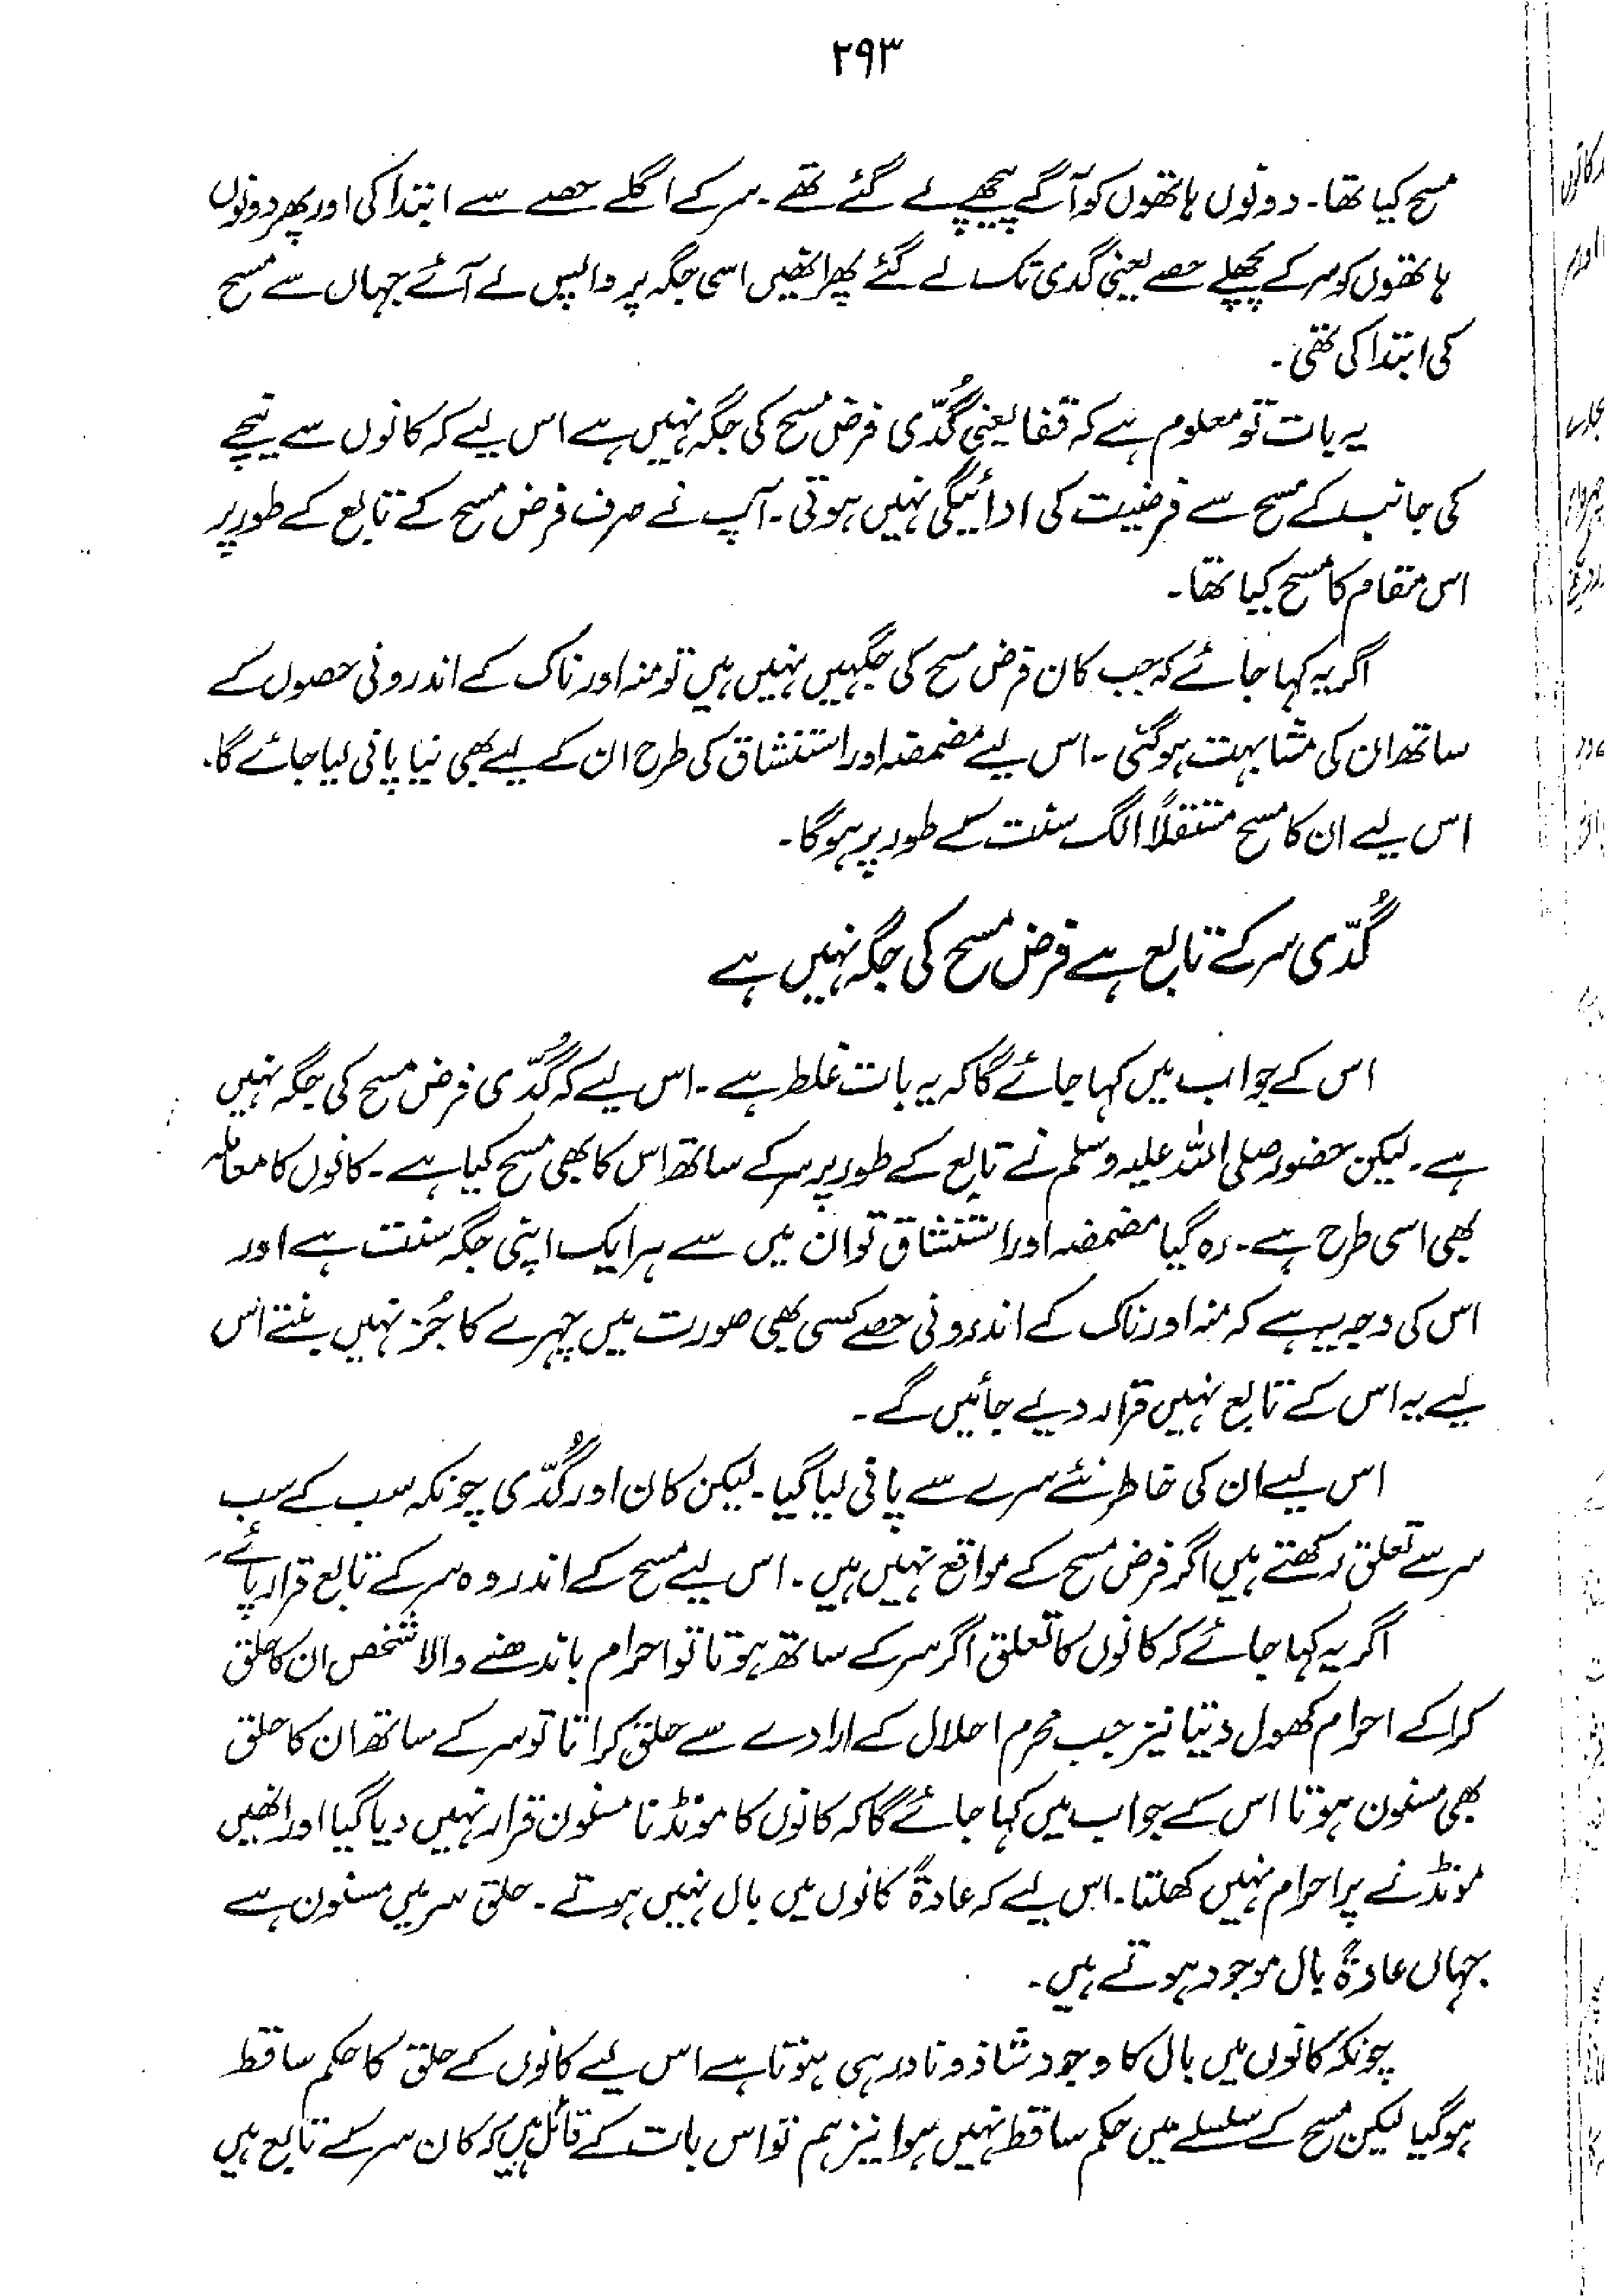 ۲۹۳
مسح کیا تھا۔ دونوں ہاتھوں کو آگے پیچھے لے گئے تھے۔ سر کے اگلے حصے سے ابتدا کی اور پھر دونوں
ہاتھوں کو سر کے پچھلے حصے یعنی گدی تک لے گئے پھر انھیں اسی جگہ پر واپس لے آئے جہاں سے مسح
کی ابتدا کی تھی۔
یہ بات تو معلوم ہے کہ قفا یعنی گُدّی فرض مسح کی جگہ نہیں ہے اس لیے کہ کانوں سے نیچے
کی جانب کے مسح سے فرضیت کی ادائیگی نہیں ہوتی۔ آپ نے صرف فرض مسح کے تابع کے طور پر
اس مقام کا مسح کیا تھا۔
اگر یہ کہا جائے کہ جب کان فرض مسح کی جگہیں نہیں ہیں تو منہ اور ناک کے اندرونی حصوں کے
ساتھ ان کی مشابہت ہو گئی۔ اس لیے مضمضہ اور استنشاق کی طرح ان کے لیے بھی نیا پانی لیا جائے گا۔
اس لیے ان کا مسح مستقلاً الگ سنت کے طور پر ہوگا۔
گُدّی سر کے تابع ہے فرض مسح کی جگہ نہیں ہے
اس کے جواب میں کہا جائے گا کہ یہ بات غلط ہے۔ اس لیے کہ گُدّی فرض مسح کی جگہ نہیں
ہے۔ لیکن حضور صلی اللہ علیہ وسلم نے تابع کے طور پر سر کے ساتھ اس کا بھی مسح کیا ہے۔ کانوں کا معاملہ
بھی اسی طرح ہے۔ رہ گیا مضمضہ اور استنشاق تو ان میں سے ہر ایک اپنی جگہ سنت ہے اور
اس کی وجہ یہ ہے کہ منہ اور ناک کے اندرونی حصے کسی بھی صورت میں چہرے کا جُز نہیں بنتے اس
لیے یہ اس کے تابع نہیں قرار دیے جائیں گے۔
اس لیے ان کی خاطر نئے سرے سے پانی لیا گیا۔ لیکن کان اور گُدّی چونکہ سب کے سب
سر سے تعلق رکھتے ہیں اگر فرض مسح کے مواقع نہیں ہیں۔ اس لیے مسح کے اندر وہ سر کے تابع قرار پائے۔
اگر یہ کہا جائے کہ کانوں کا تعلق اگر سر کے ساتھ ہوتا تو احرام باندھنے والا شخص ان کا حلق
کرا کے احرام کھول دیتا نیز جب محرم احلال کے ارادے سے حلق کراتا تو سر کے ساتھ ان کا حلق
بھی مسنون ہوتا اس کے جواب میں کہا جائے گا کہ کانوں کا مونڈنا مسنون قرار نہیں دیا گیا اور انھیں
مونڈنے پر احرام نہیں کھلتا۔ اس لیے کہ عادۃً کانوں میں بال نہیں ہوتے۔ حلق سر میں مسنون ہے
جہاں عادۃً بال موجود ہوتے ہیں۔
چونکہ کانوں میں بال کا وجود شاذ و نادر ہی ہوتا ہے اس لیے کانوں کے حلق کا حکم ساقط
ہو گیا لیکن مسح کے سلسلے میں حکم ساقط نہیں ہوا نیز ہم تو اس بات کے قائل ہیں کہ کان سر کے تابع ہیں